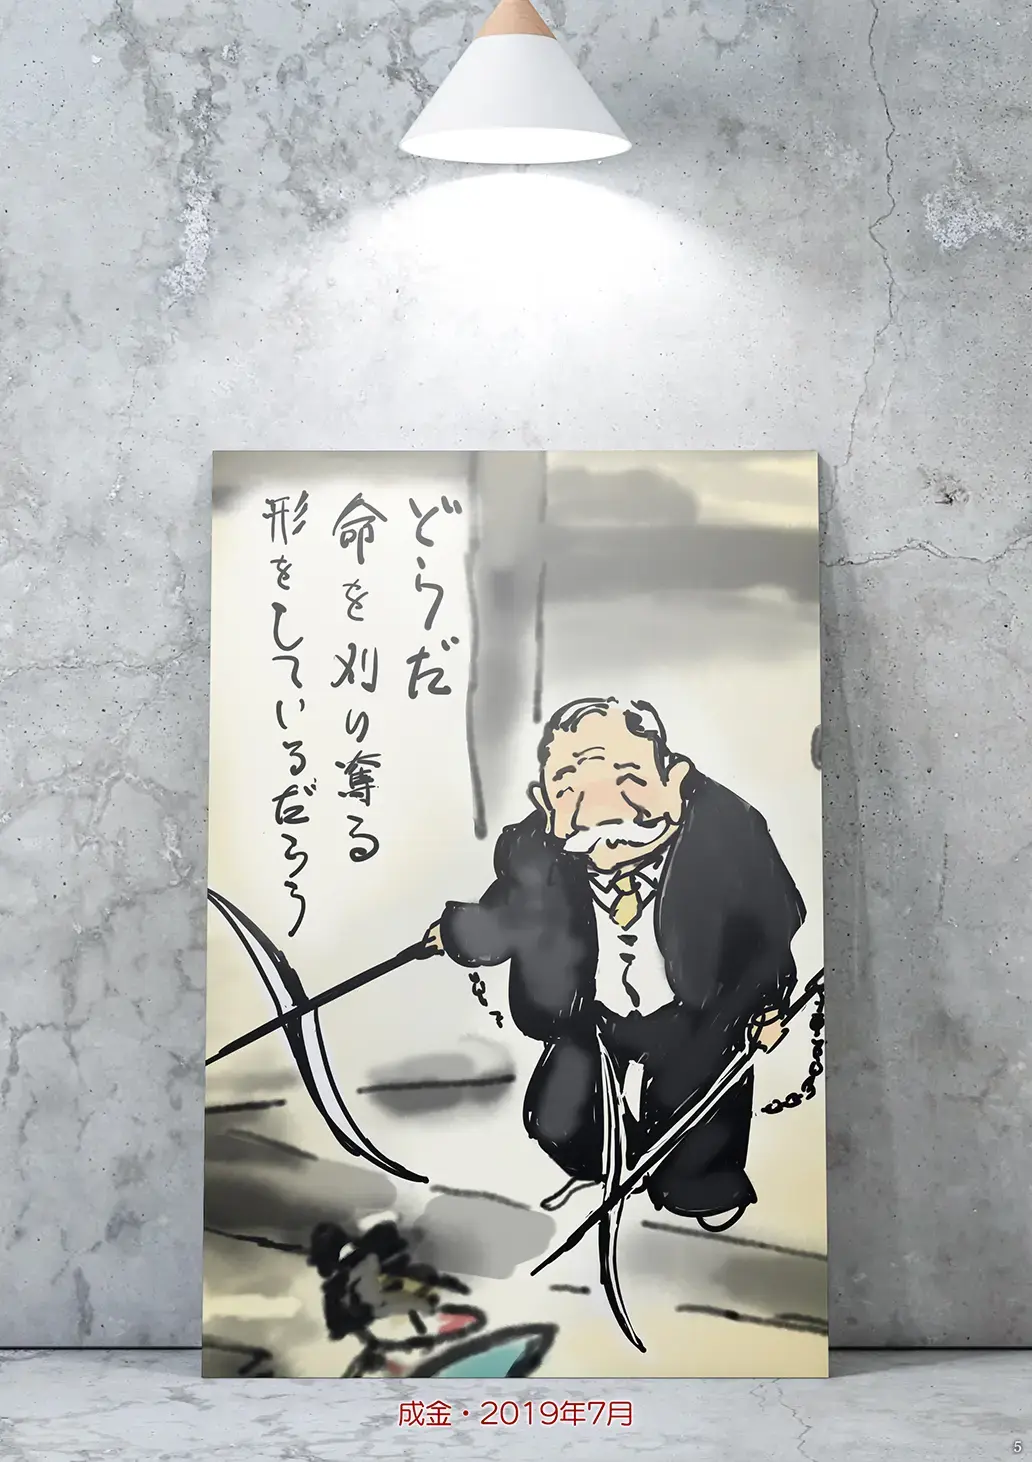 どうだ
命を刈り奪る
形をしているだろう
成金・2019年7月
5